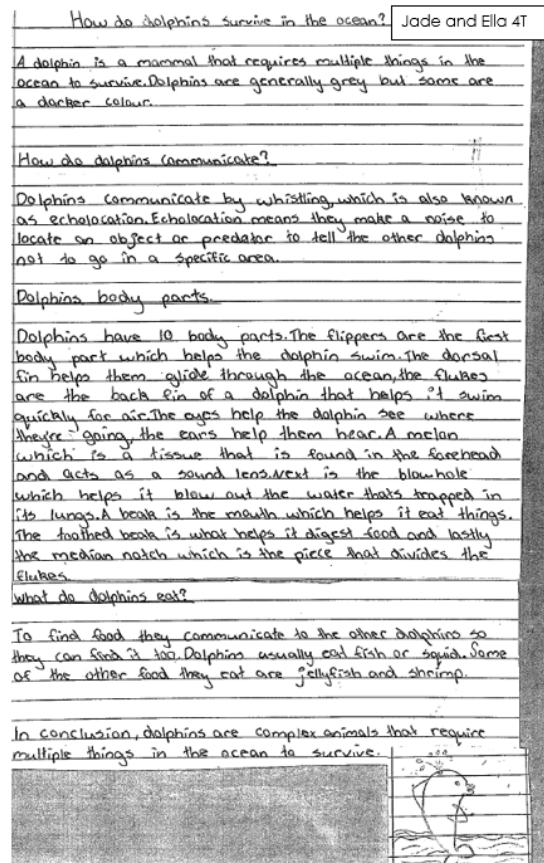 How do dolphins survive in the ocean?
Jade and Ella 4T
A dolphin is a mammal that requires multiple things in the
ocean to survive. Dolphins are generally grey but some are
a darker colour.
How do dolphins communicate?
Dolphins communicate by whistling, which is also known
as echolocation. Echolocation means they make a noise to
locate an object or predator to tell the other dolphins
not to go in a specific area.
Dolphins body parts.
Dolphins have 10 body parts. The flippers are the first
body part which helps the dolphin swim. The dorsal
fin helps them glide through the ocean, the flukes
are the back fin of a dolphin that helps it swim
quickly for air. The eyes help the dolphin see where
they're going, the ears help them hear. A melon
which is a tissue that is found in the forehead
and acts as a sound lens. Next is the blowhole
which helps it blow out the water thats trapped in
its lungs. A beak is the mouth which helps it eat things.
The toothed beak is what helps it digest food and lastly
the median notch which is the piece that divides the
flukes.
What do dolphins eat?
To find food they communicate to the other dolphins so
they can find it too. Dolphins usually eat fish or squid. Some
of the other food they eat are jellyfish and shrimp.
In conclusion, dolphins are complex animals that require
multiple things in the ocean to survive.